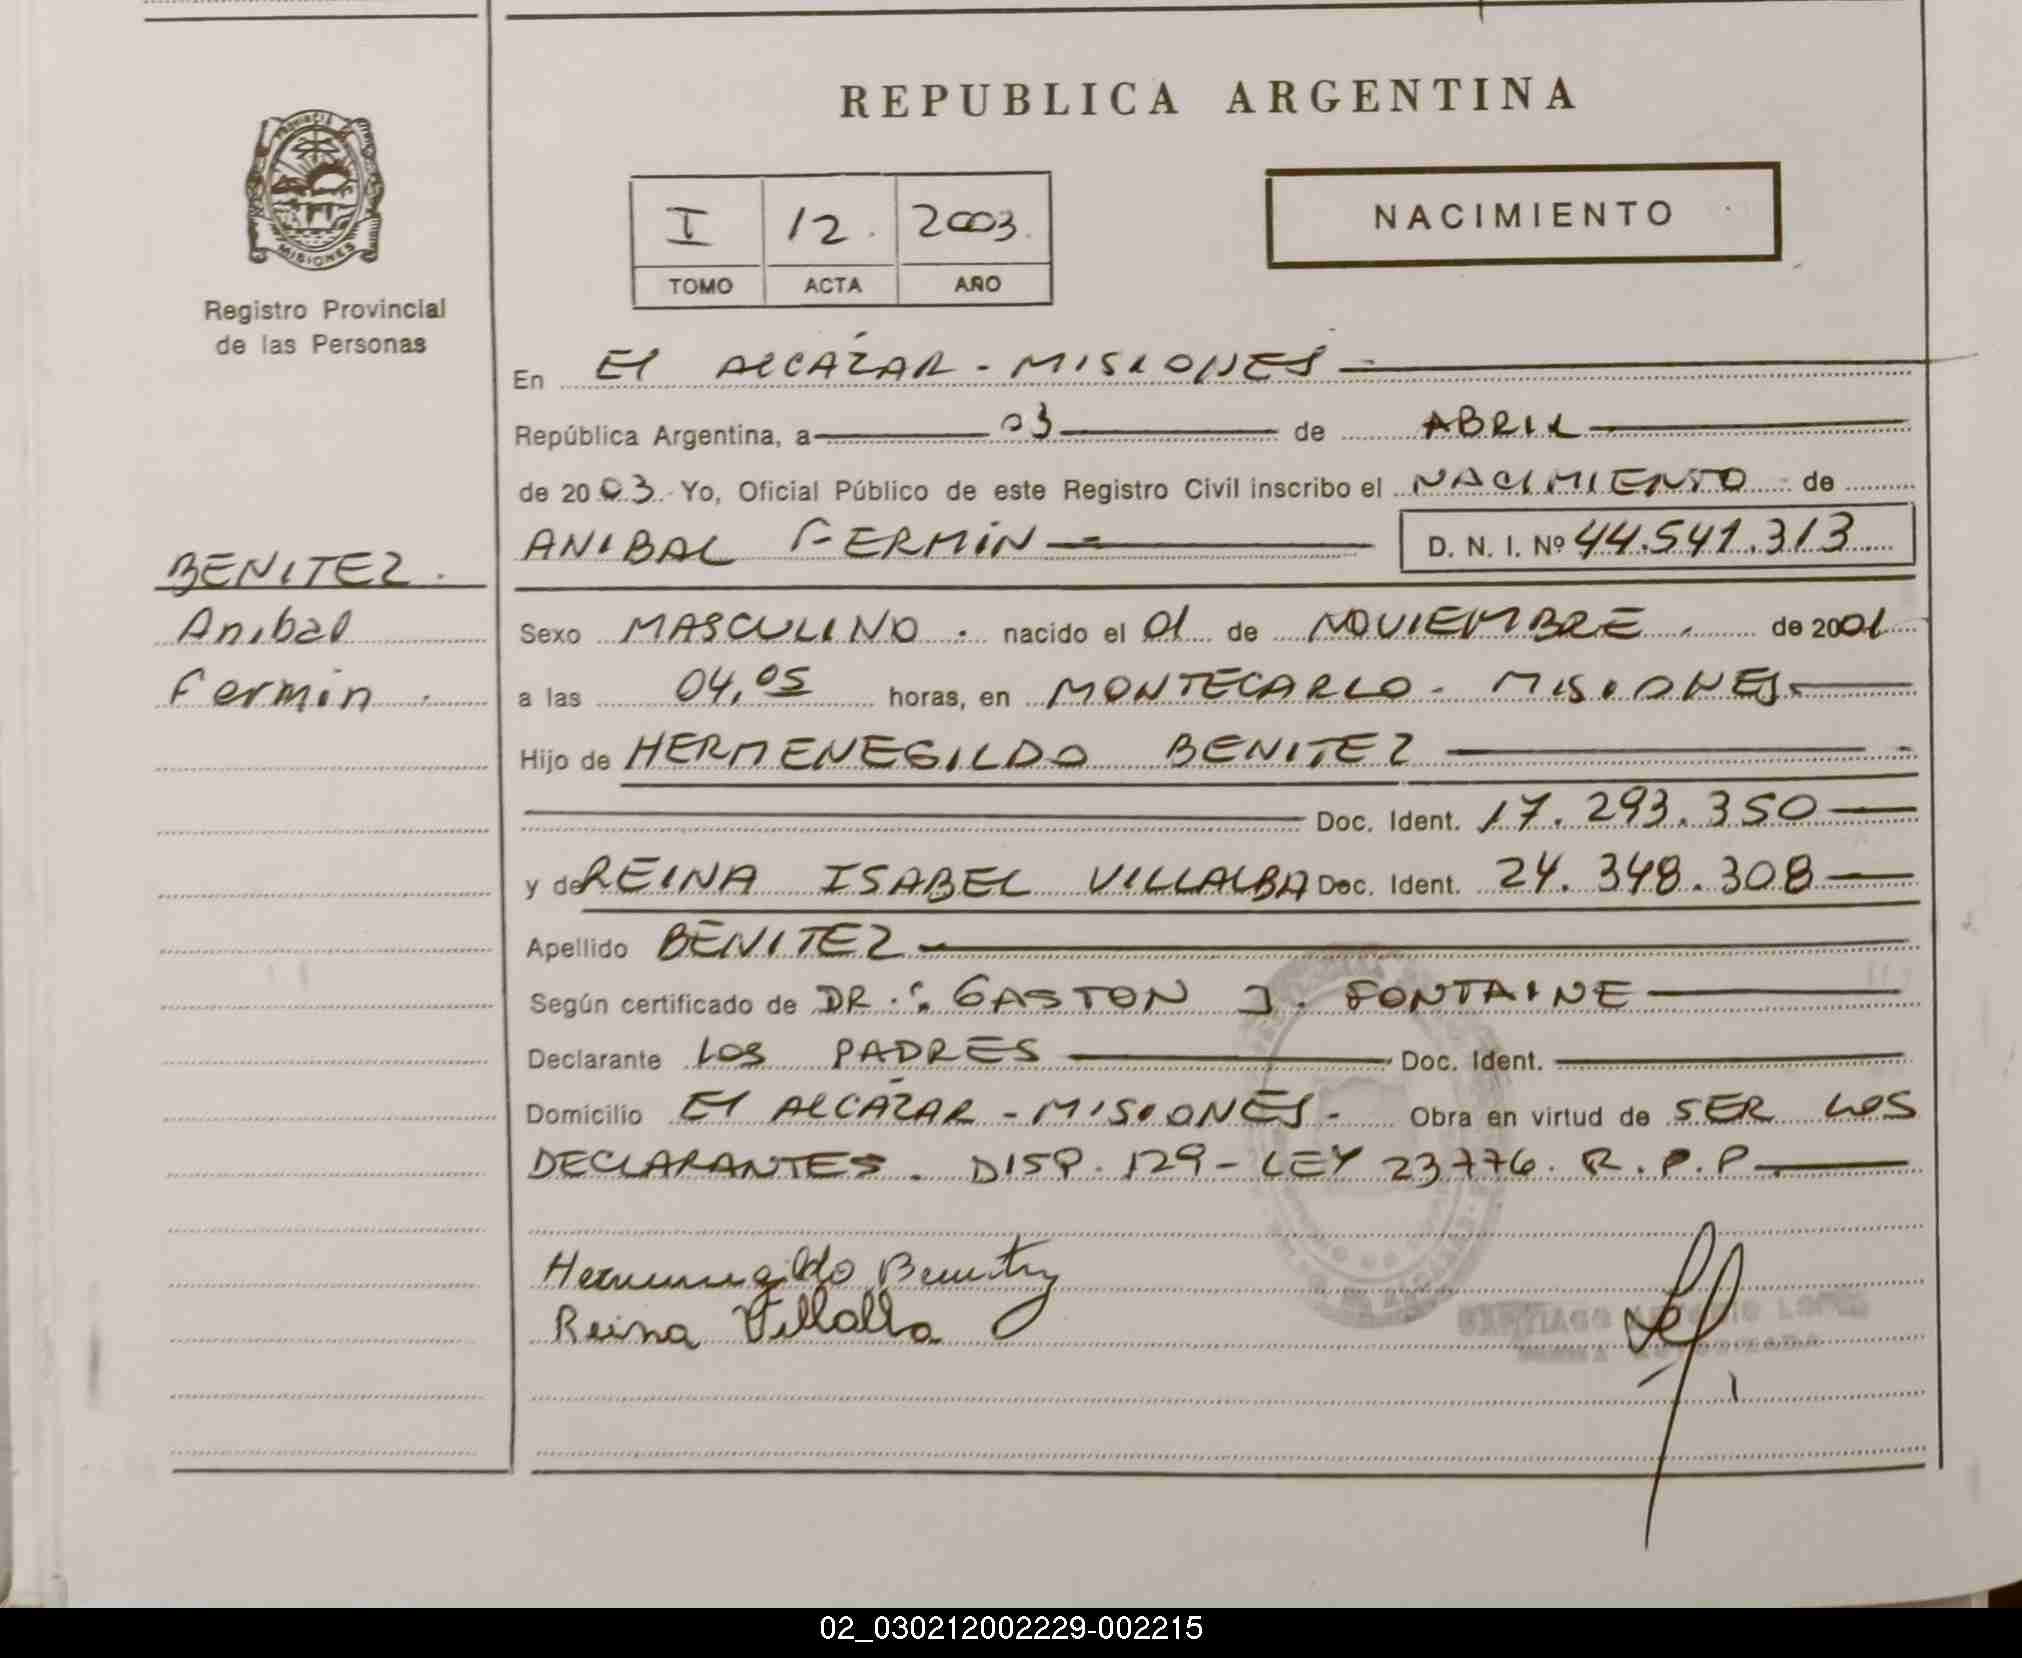 REPUBLICA ARGENTINA
PROVINCIA DE
MISIONES
Registro Provincial
de las Personas
I 12. 2003.
TOMO ACTA AÑO
NACIMIENTO
En El ALCAZAR - MISIONES
República Argentina, a 03 de ABRIL
de 2003. Yo, Oficial Público de este Registro Civil inscribo el NACIMIENTO de
ANIBAL FERMÍN D. N. I. Nº 44.541.313
BENITEZ.
Anibal
Fermín.
Sexo MASCULINO. nacido el 01 de NOVIEMBRE. de 2001
a las 04,05 horas, en MONTECARLO - MISIONES.
Hijo de HERMENEGILDO BENITEZ
Doc. Ident. 17.293.350
y de REINA ISABEL VILLALBA Doc. Ident. 24.348.308
Apellido BENITEZ
Según certificado de DR.: GASTON J. FONTAINE
Declarante LOS PADRES Doc. Ident.
Domicilio El ALCAZAR - MISIONES - Obra en virtud de SER LOS
DECLARANTES. DISP. 129 - LEY 23776. R.P.P.
Hermenegildo Benitez
Reina Villalba
SANTIAGO ANTONIO LOPEZ
FIRMA AUTORIZADA
02_030212002229-002215